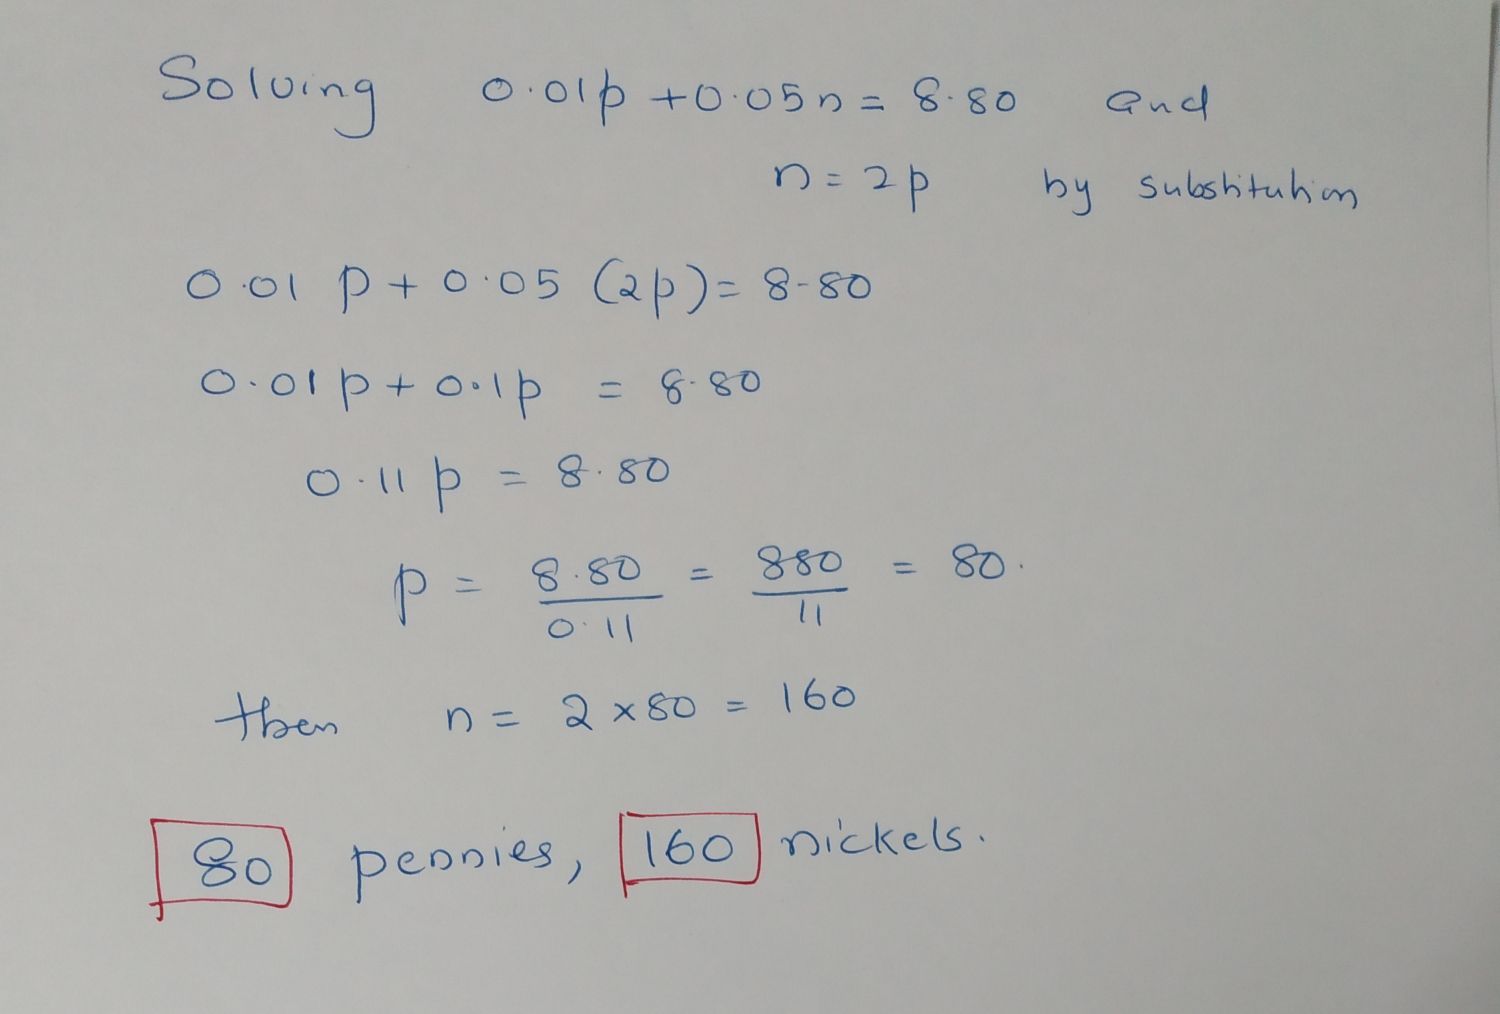 Solving 0.01p + 0.05n = 8.80 and
n = 2p by substitution
0.01 p + 0.05 (2p) = 8.80
0.01p + 0.1p = 8.80
0.11 p = 8.80
p = 8.80/0.11 = 880/11 = 80.
then n = 2 × 80 = 160
80 pennies, 160 nickels.